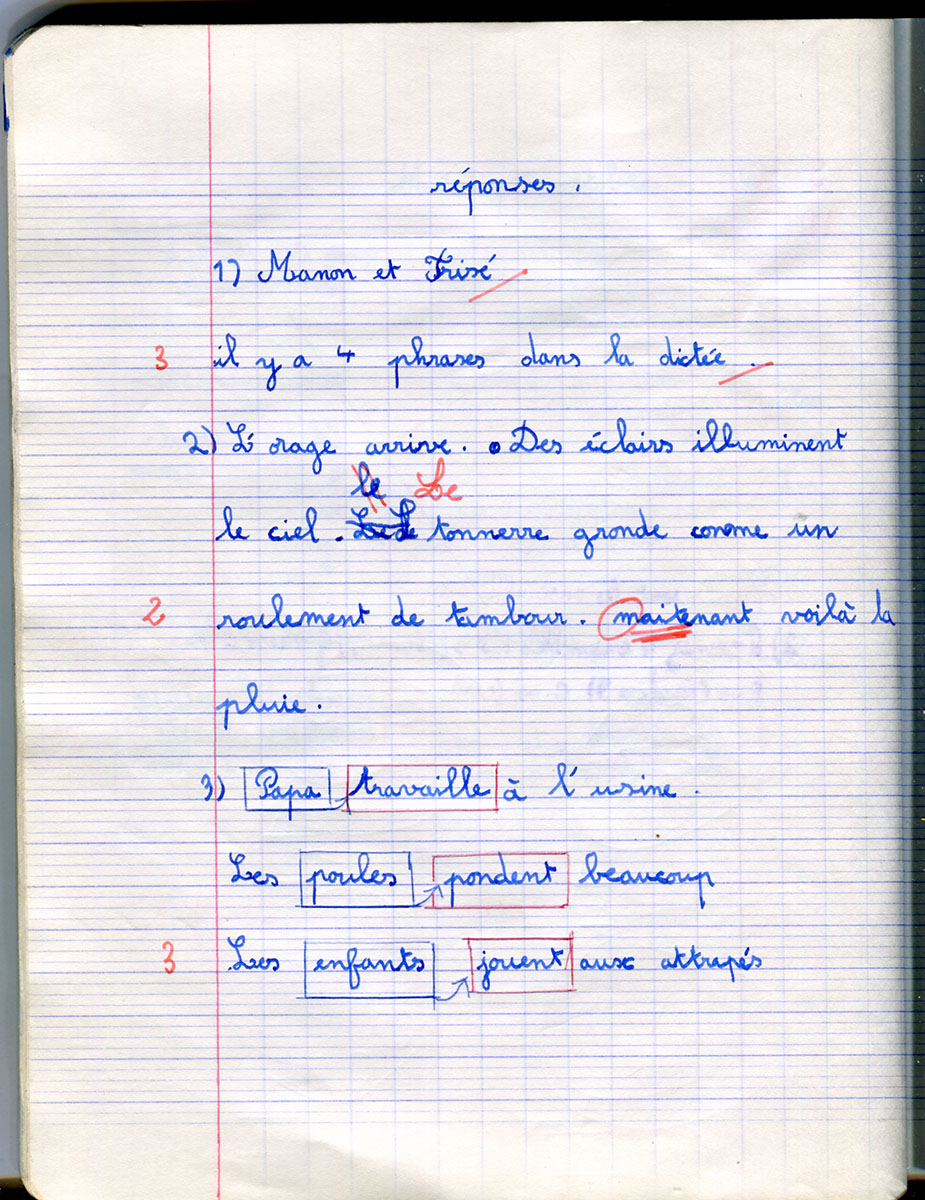 réponses.
1) Manon et Frisé
3 il y a 4 phrases dans la dictée.
2) L'orage arrive. Des éclairs illuminent
le Le
le ciel. Le tonnerre gronde comme un
2 roulement de tambour. maitenant voilà la
pluie.
3) Papa travaille à l'usine.
Les poules pondent beaucoup
3 Les enfants jouent aux attrapés